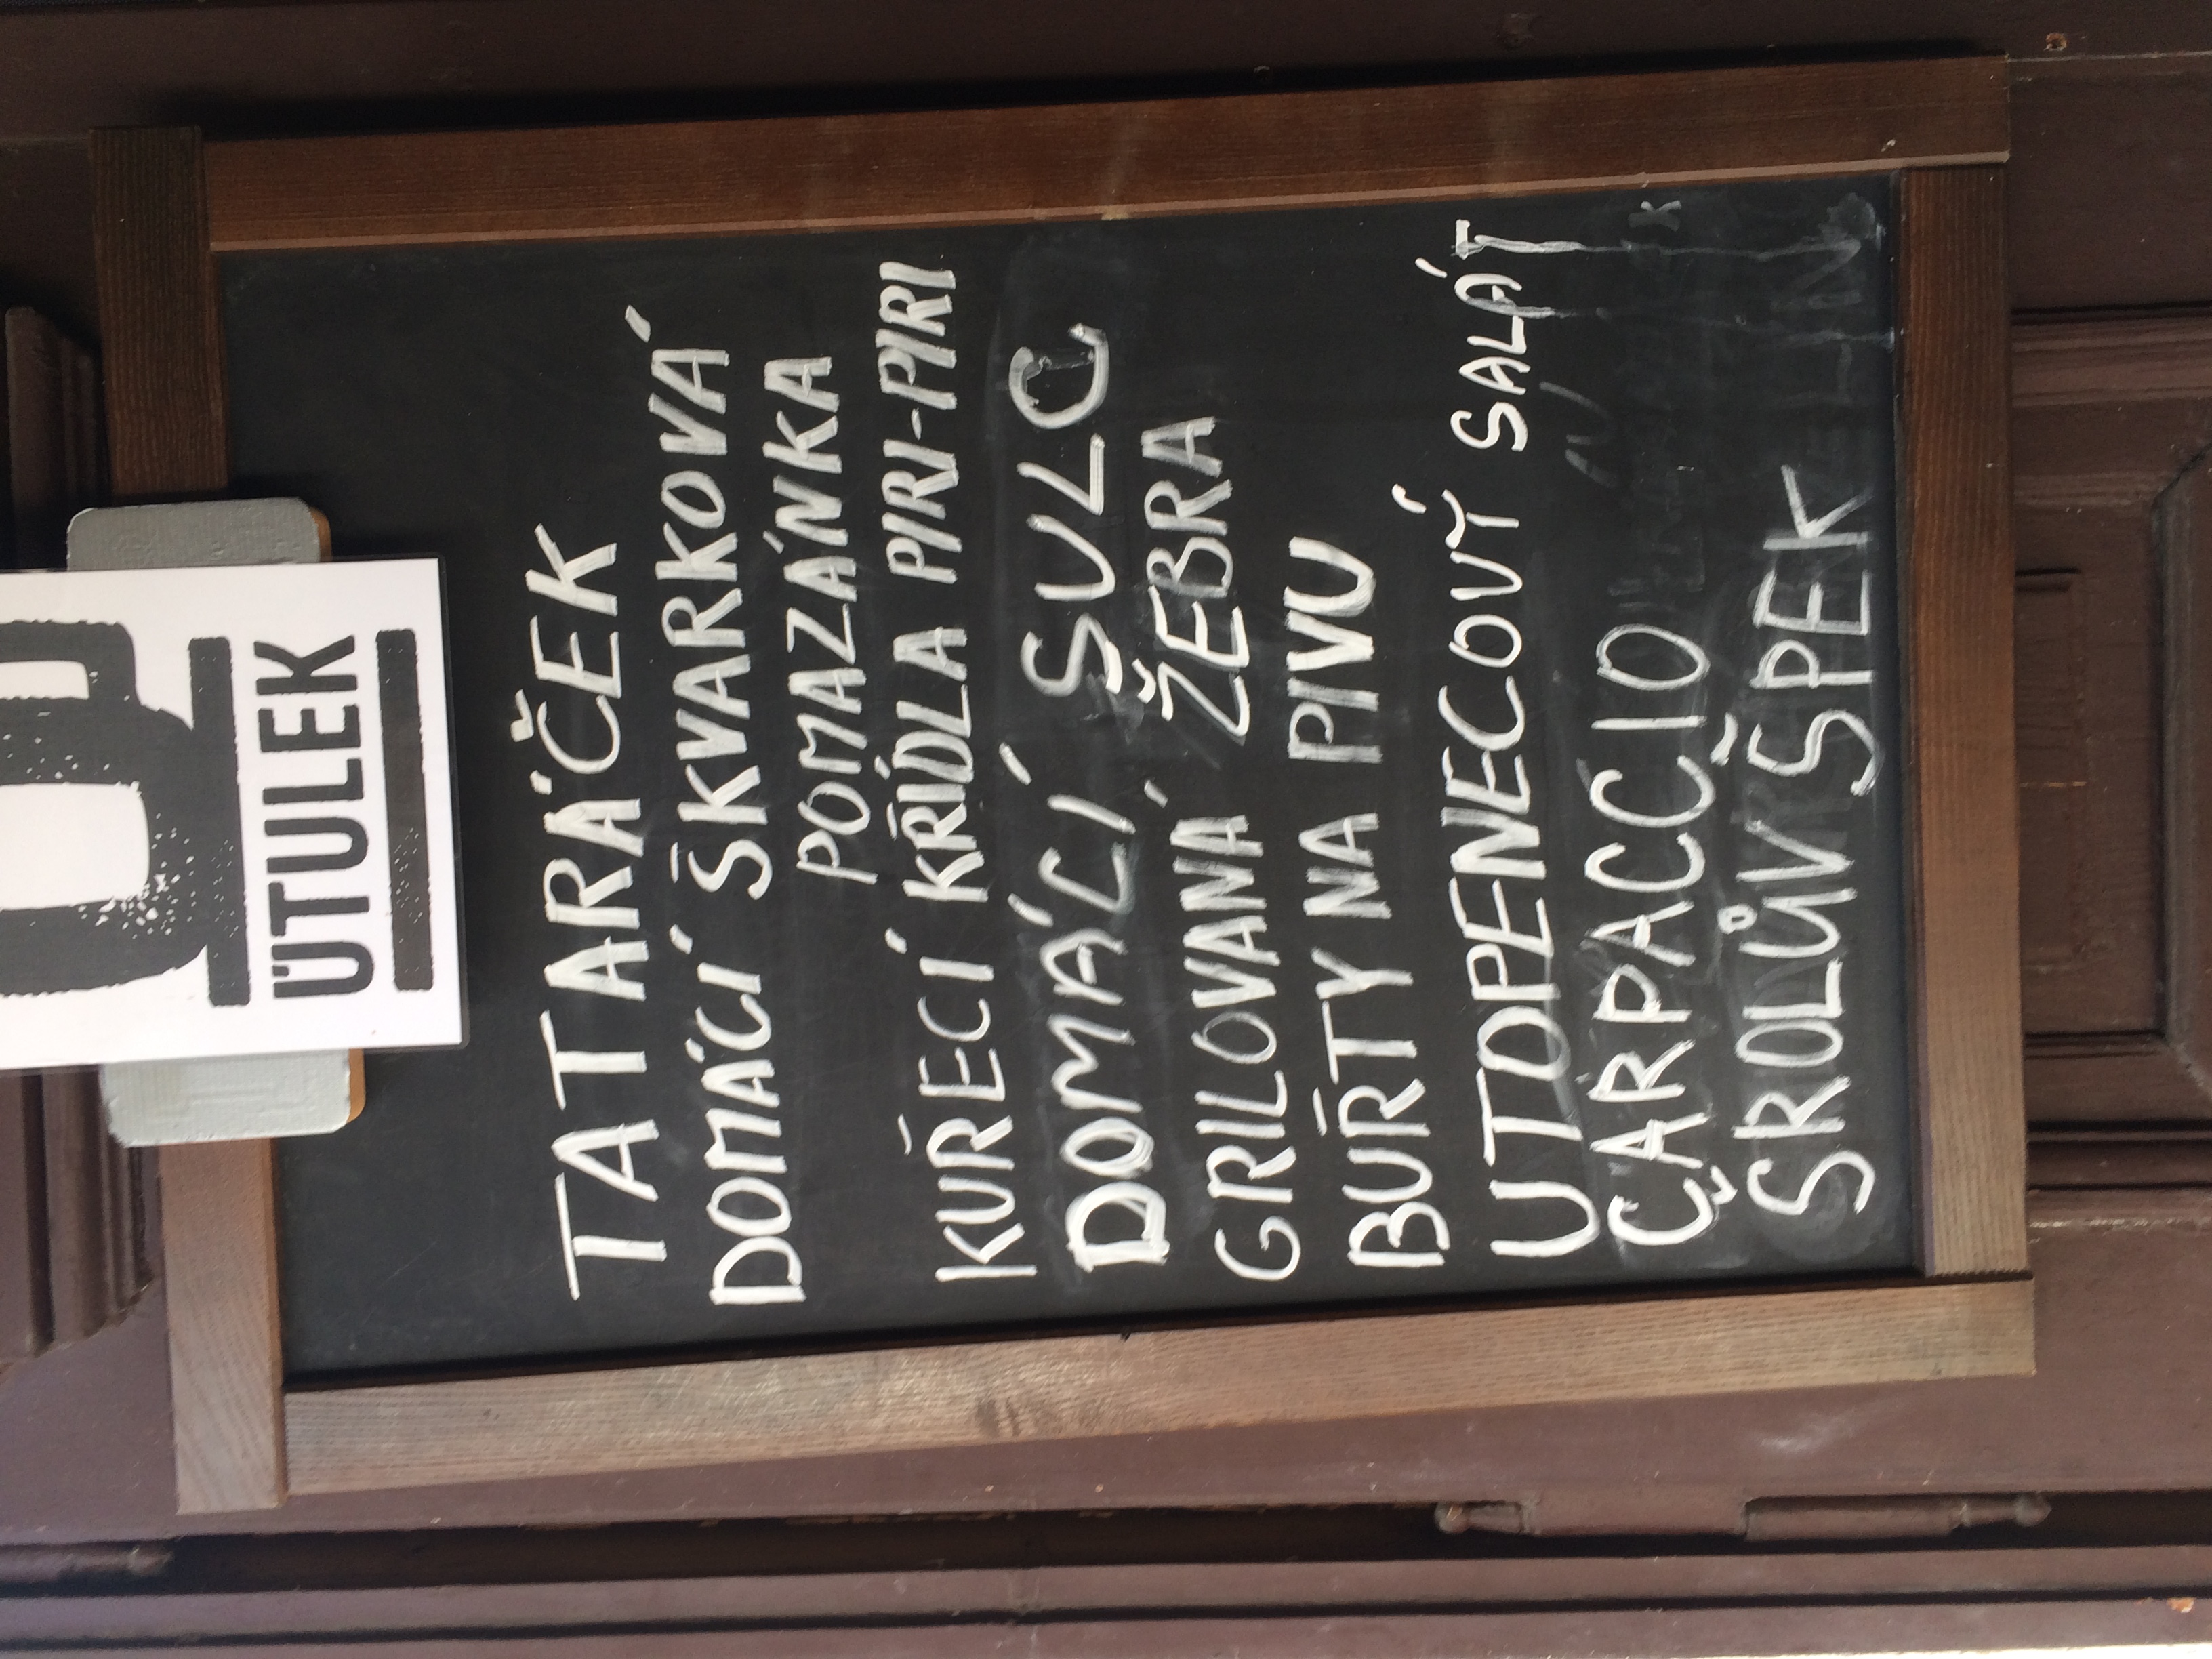 ÚTULEK
TATARÁČEK
DOMÁCÍ ŠKVARKOVÁ
POMAZÁNKA
KUŘECÍ KŘÍDLA PIRI-PIRI
DOMÁCÍ SULC
GRILOVANÁ ŽEBRA
BUŘTY NA PIVU
UTOPENECOVÝ SALÁT
ČARPACCIO
ŠROLŮV ŠPEK